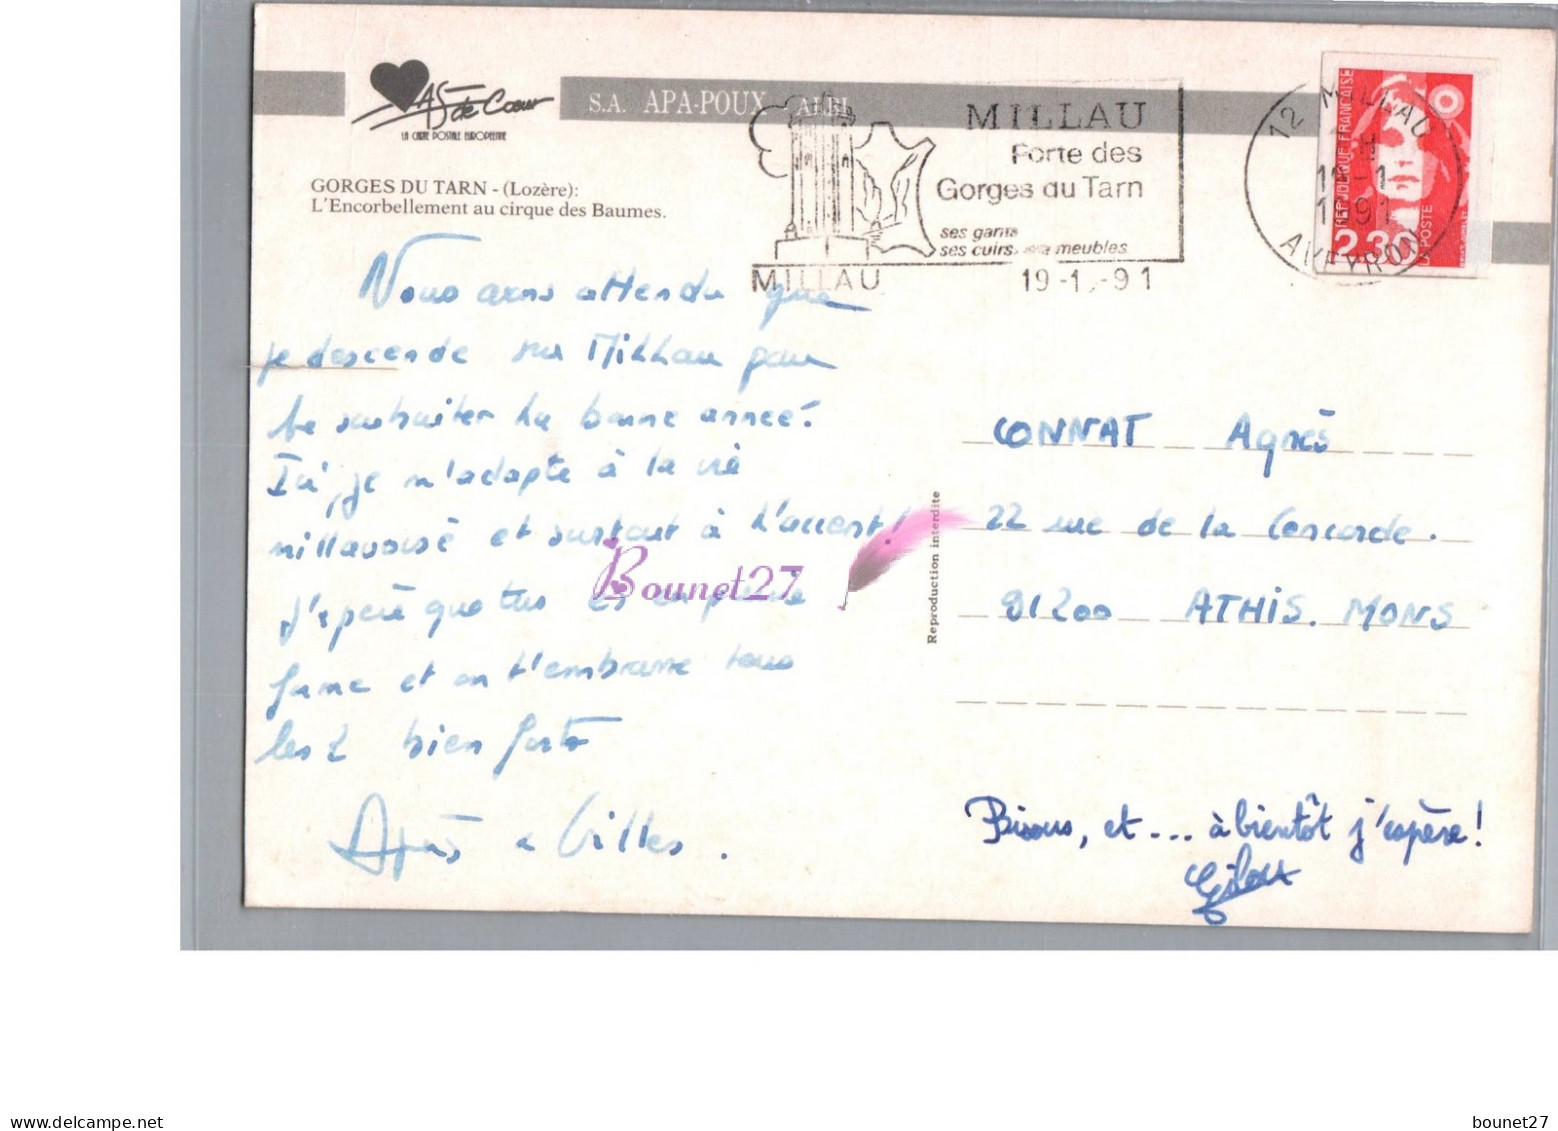 AS de Cœur
LA CARTE POSTALE EUROPEENNE
S.A. APA-POUX - ALBI
GORGES DU TARN - (Lozère):
L'Encorbellement au cirque des Baumes.
MILLAU
Porte des
Gorges du Tarn
ses gants
ses cuirs, ses meubles
MILLAU
19-1.-91
12 MILLAU
H
19-1
1991
AVEYRON
REPUBLIQUE FRANÇAISE
2,30
LA POSTE
Nous avons attendu que
je descende sur Millau pour
te souhaiter la bonne année.
Ici, je m'adapte à la vie
millavoise et surtout à l'accent!
J'espère que tu es en pleine
forme et on t'embrasse tous
les 2 bien forts
Agnès & Gilles.
CONNAT Agnès
22 rue de la Concorde.
91200 ATHIS. MONS
Reproduction interdite
Bisous, et... à bientôt j'espère!
Gilou
Bounet27
delcampe.net
bounet27